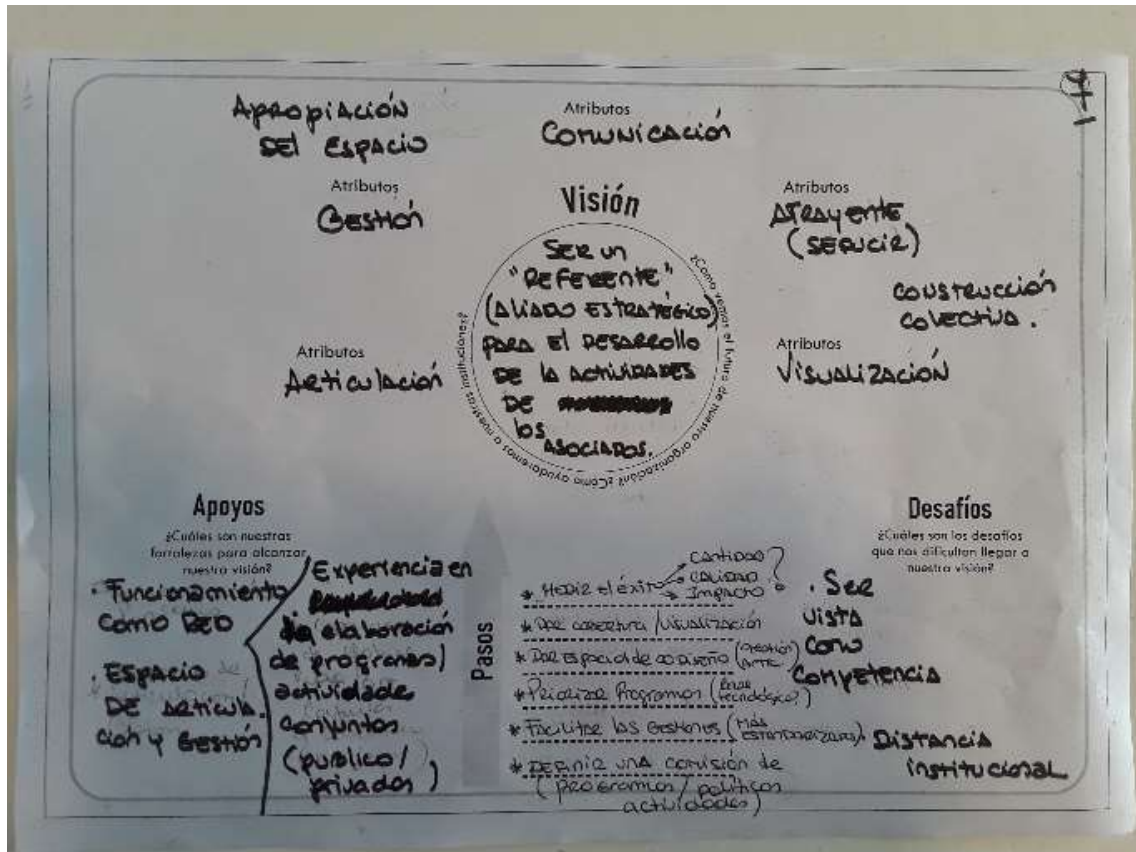 Apropiación
del espacio
Atributos
Comunicación
Atributos
Gestión
Visión
Atributos
Atrayente
(seducir)
Ser un
"referente"
(aliado estratégico)
para el desarrollo
de la actividades
de
los
asociados.
¿Como vemos el futuro de nuestra organización? ¿Cómo ayudaremos a nuestras instituciones?
construcción
colectiva.
Atributos
Articulación
Atributos
Visualización
Apoyos
¿Cuáles son nuestras
fortalezas para alcanzar
nuestra visión?
· Funcionamiento
como red
· Espacio
de articula
ción y gestión
Experiencia en
elaboración
de programas/
actividade
conjuntos
(publico/
privados)
Pasos
* Medir el éxito
cantidad
calidad
impacto
?
* Dar cobertura / visualización
* Dar espacio de codiseño
* Priorizar Programas
* Facilitar las gestiones (más
estandarizado)
* Definir una comisión de
(programas/políticas
actividades)
Desafíos
¿Cuáles son los desafíos
que nos dificultan llegar a
nuestra visión?
· Ser
vista
como
competencia
· Distancia
institucional